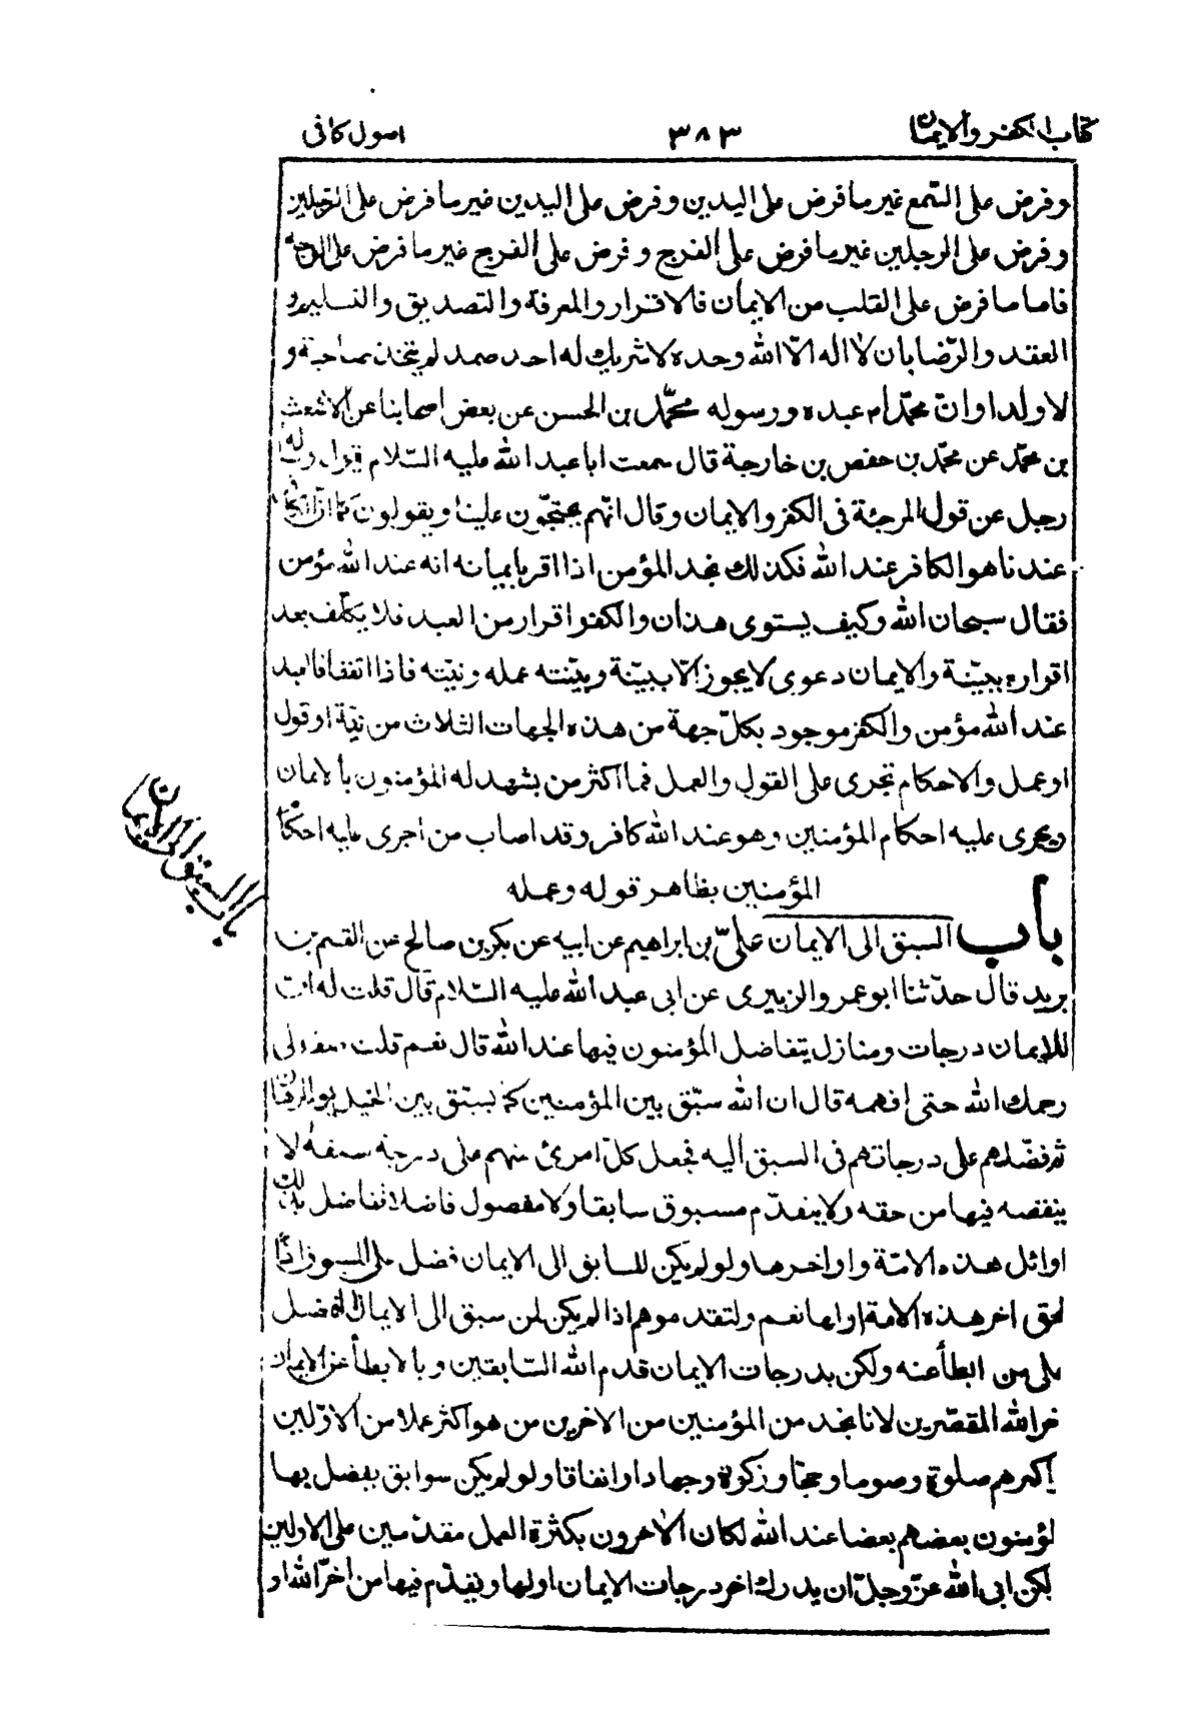 كتاب الكفر والايمان ٣٨٣ اصول كافى
وفرض على السّمع غير ما فرض على اليدين وفرض على اليدين غير ما فرض على الرّجلين
وفرض على الرجلين غير ما فرض على الفرج وفرض على الفرج غير ما فرض على الوجه
فاما ما فرض على القلب من الايمان فالاقرار والمعرفة والتصديق والتسليم و
العقد والرّضا بان لا اله الّا الله وحده لا شريك له احد صمد لم يتخذ صاحبة و
لا ولدا وانّ محمّدا م عبده ورسوله محمّد بن الحسن عن بعض اصحابنا عن الاشعث
بن محمّد عن محمّد بن حفص بن خارجة قال سمعت ابا عبد الله عليه السّلام يقول وساله
رجل عن قول المرجئة فى الكفر والايمان وقال انّهم يحتجّون علينا ويقولون كما انّ الكافر
عندنا هو الكافر عند الله فكذلك نجد المؤمن اذا اقرّ بايمانه انه عند الله مؤمن
فقال سبحان الله وكيف يستوى هذان والكفر اقرار من العبد فلا يكلّف بعد
اقراره ببيّنة والايمان دعوى لا يجوز الّا ببيّنة وبيّنته عمله ونيّته فاذا اتفقا فالعبد
عند الله مؤمن والكفر موجود بكلّ جهة من هذه الجهات الثلاث من نيّة او قول
او عمل والاحكام تجرى على القول والعمل فما اكثر من يشهد له المؤمنون بالايمان
ويجرى عليه احكام المؤمنين وهو عند الله كافر وقد اصاب من اجرى عليه احكام
المؤمنين بظاهر قوله وعمله
باب السبق الى الايمان علىّ بن ابراهيم عن ابيه عن بكر بن صالح عن القسم بن
بريد قال حدّثنا ابو عمرو الزبيرى عن ابى عبد الله عليه السّلام قال قلت له ان
للايمان درجات ومنازل يتفاضل المؤمنون فيها عند الله قال نعم قلت صفه لى
رحمك الله حتى افهمه قال ان الله سبّق بين المؤمنين كما يسبّق بين الخيل يوم الرهان
ثم فضّلهم على درجاتهم فى السبق اليه فجعل كلّ امرئ منهم على درجة سبقه لا
ينقصه فيها من حقه ولا يتقدّم مسبوق سابقا ولا مفضول فاضلا تفاضل بذلك
اوائل هذه الامّة واواخرها ولو لم يكن للسابق الى الايمان فضل على المسبوق اذًا
لحق اخر هذه الامة اولها نعم ولتقدموهم اذا لم يكن لمن سبق الى الايمان الفضل
على من ابطأ عنه ولكن بدرجات الايمان قدم الله السّابقين وبالابطأ عن الايمان
اخر الله المقصّرين لانا نجد من المؤمنين من الاخرين من هو اكثر عملا من الاوّلين
اكثرهم صلوة وصوما وحجّا وزكوة وجهادا وانفاقا ولو لم يكن سوابق يفضل بها
المؤمنون بعضهم بعضا عند الله لكان الاخرون بكثرة العمل مقدّمين على الاولين
لكن ابى الله عزّ وجلّ ان يدرك اخر درجات الايمان اولها ويقدّم فيها من اخّر الله او
باب السبق الى الايمان